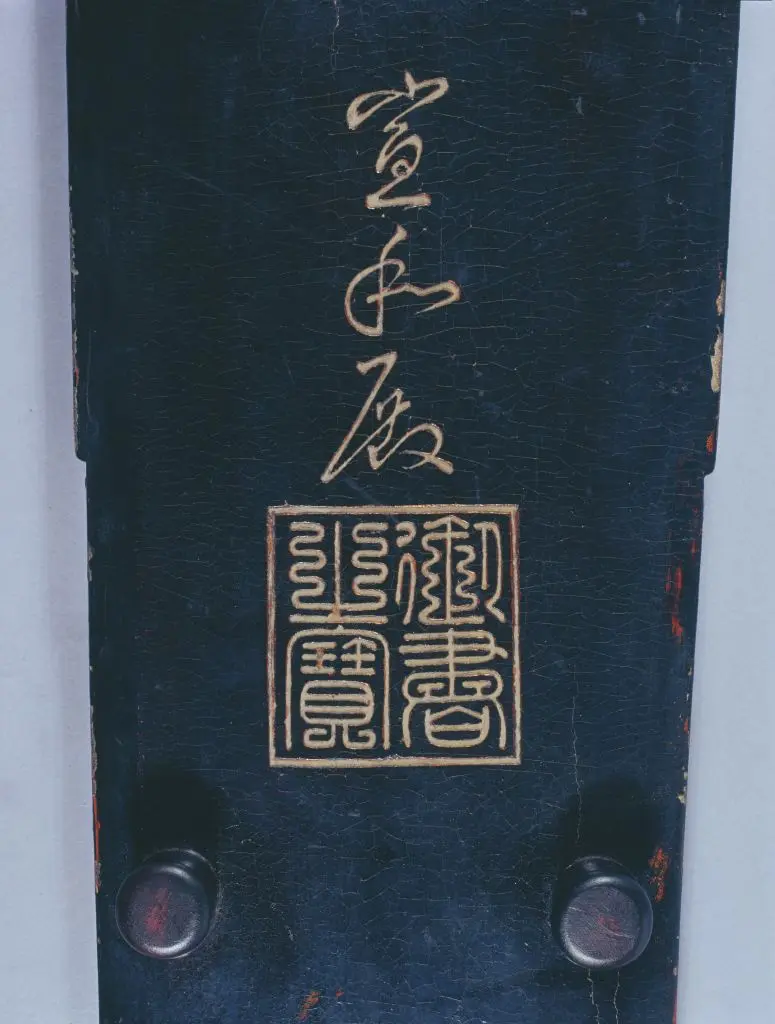 宣和殿
御書之寶